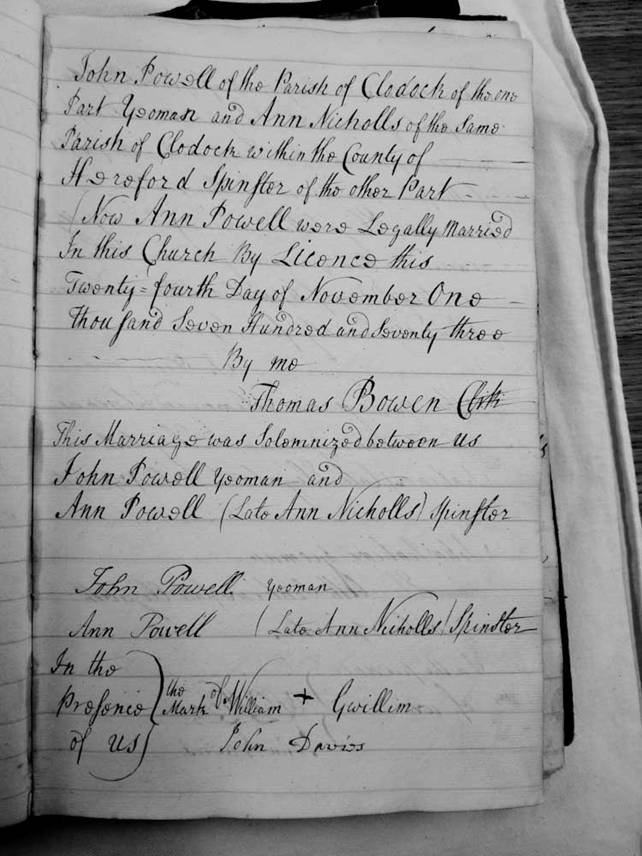 John Powell of the Parish of Clodock of the one
Part Yeoman and Ann Nicholls of the same
Parish of Clodock within the County of
Hereford Spinster of the other Part
(Now Ann Powell were Legally Married
In this Church By Licence this
Twenty=fourth Day of November One
thousand Seven Hundred and Seventy three
By me
Thomas Bowen Clk
This Marriage was Solemnized between us
John Powell Yeoman and
Ann Powell (Late Ann Nicholls) Spinster
John Powell Yeoman
Ann Powell (Late Ann Nicholls) Spinster
In the
Presence } the Mark of William + Gwillim
of us John Davies